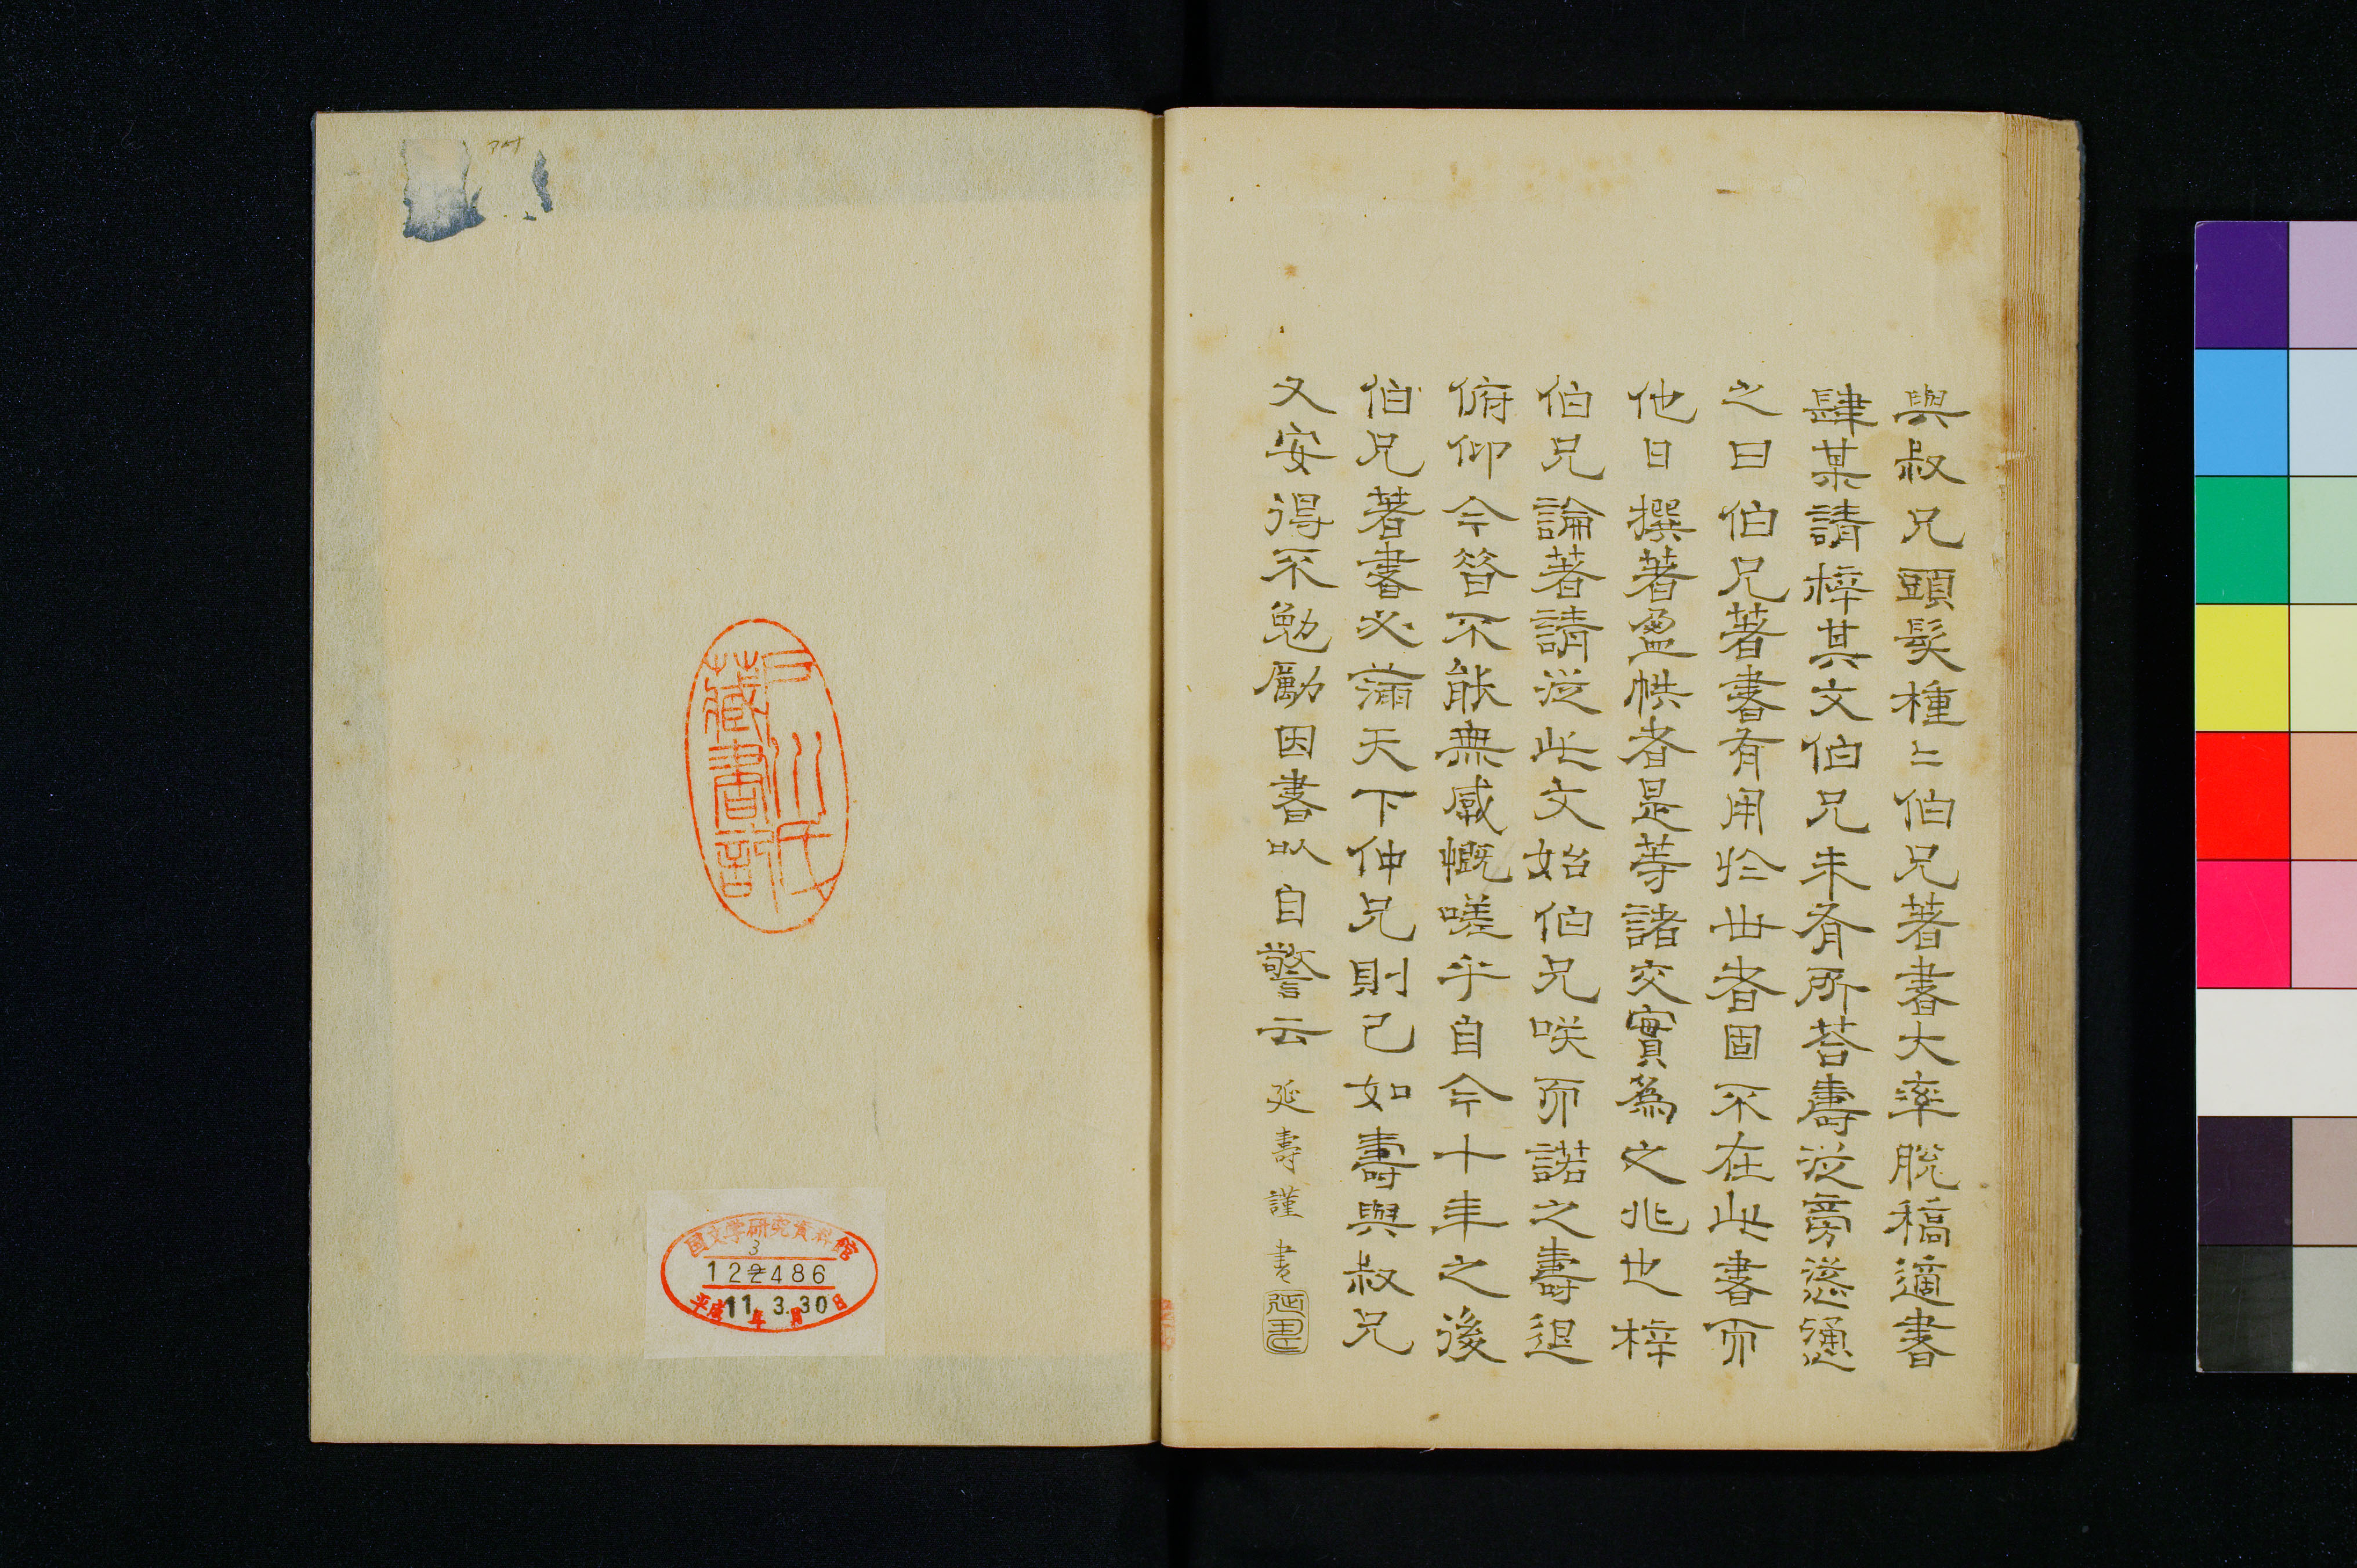 與叔兄頭髮種〻伯兄著書大率脫稿適書
肆某請梓其文伯兄未有所荅壽從旁慫慂
之曰伯兄著書有用於世者固不在此書而
他日撰著盈帙者是等諸文實為之兆也梓
伯兄論著請從此文始伯兄咲而諾之壽退
俯仰今昔不能無感慨嗟乎自今十年之後
伯兄著書必滿天下仲兄則已如壽與叔兄
又安得不勉勵因書以自警云 延壽謹書
延壽
戸川氏
藏書記
国文学研究資料館
3
122486
平成11年3月30日